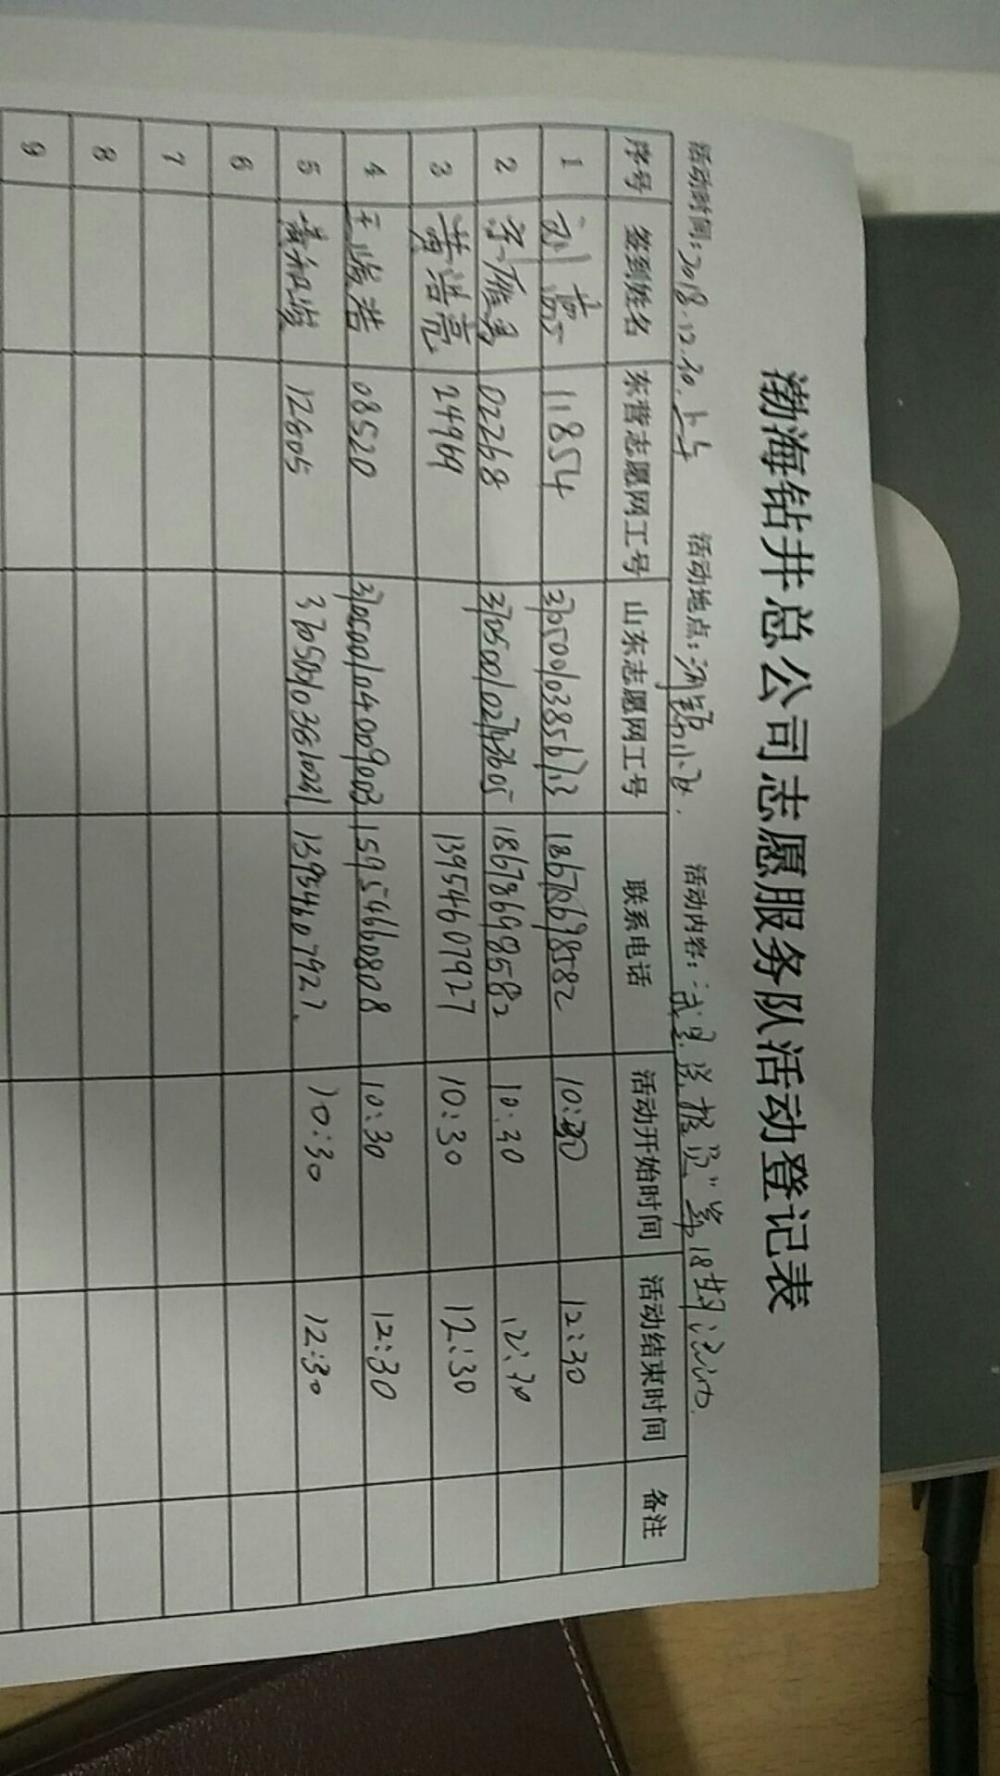 渤海钻井总公司志愿服务队活动登记表
活动时间:2018.12.30.上午 活动地点: 活动内容: 第18期活动.
序号 签到姓名 东营志愿网工号 山东志愿网工号 联系电话 活动开始时间 活动结束时间 备注
1 刘 11854 18678698582 10:30 12:30
2 李雁勇 02268 18678698582 10:30 12:30
3 黄浩亮 24969 13954607927 10:30 12:30
4 王俊浩 08520 15954660808 10:30 12:30
5 12605 13954607927. 10:30 12:30
6
7
8
9